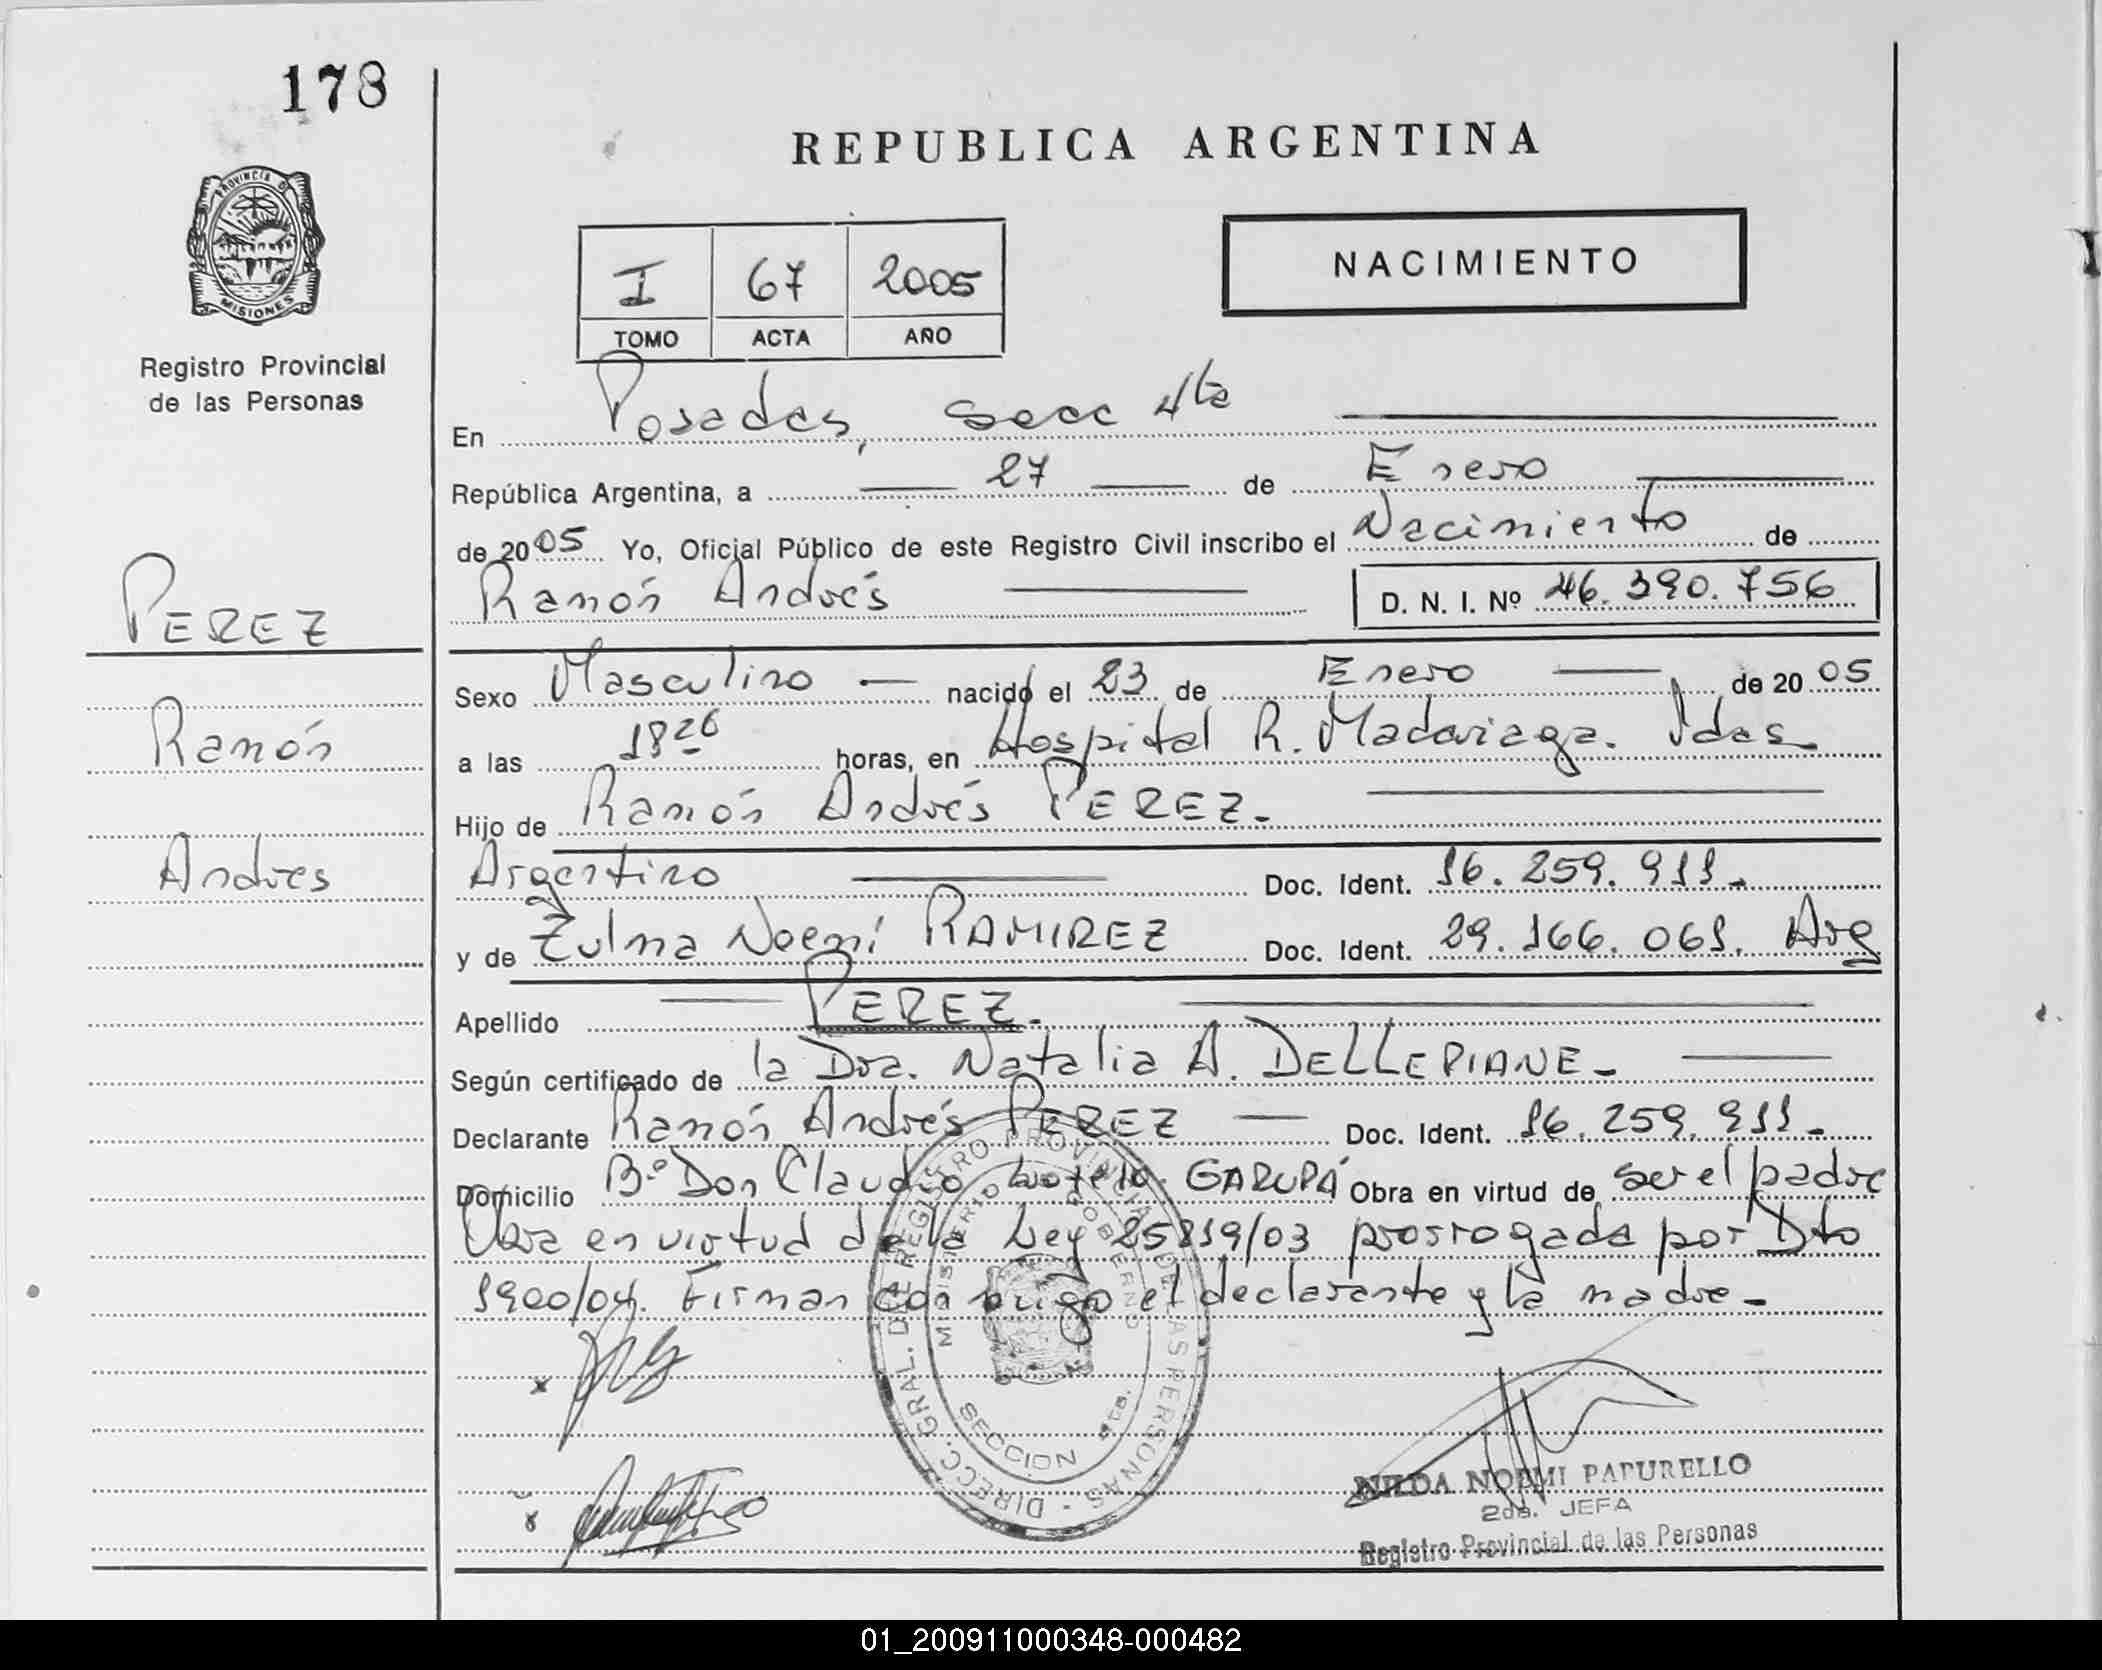 178
PROVINCIA DE
MISIONES
Registro Provincial
de las Personas
PEREZ
Ramón
Andres
REPUBLICA ARGENTINA
I 67 2005
TOMO ACTA AÑO
NACIMIENTO
En Posadas, secc 4ta
República Argentina, a 27 de Enero
de 2005 Yo, Oficial Público de este Registro Civil inscribo el Nacimiento de
Ramón Andrés D. N. I. Nº 46.390.756
Sexo Masculino nacido el 23 de Enero de 2005
a las 18 26 horas, en Hospital R. Madariaga. Pdas
Hijo de Ramón Andrés PEREZ.
Argentino Doc. Ident. 16.259.911.
y de Zulma Noemí RAMIREZ Doc. Ident. 29.166.061. Arg
Apellido PEREZ.
Según certificado de la Dra. Natalia A. DELLEPIANE
Declarante Ramón Andrés PEREZ Doc. Ident. 16.259.911.
Domicilio Bº Don Claudio Lote 10. GARUPÁ Obra en virtud de ser el padre
Obra en virtud de la Ley 25819/03 prorrogada por Dto
1900/04. Firman conmigo el declarante y la madre
DIRECC. GRAL. DE REGISTRO PROVINCIAL DE LAS PERSONAS
MINISTERIO GOBIERNO
SECCION 4ta.
NILDA NOEMI PAPURELLO
2da. JEFA
Registro Provincial de las Personas
01_200911000348-000482